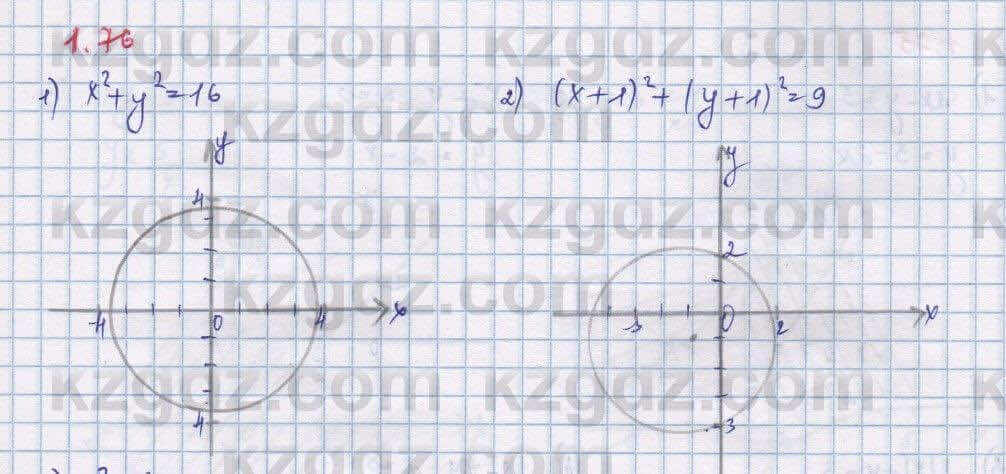 1.76
1) x²+y²=16
2) (x+1)²+(y+1)²=9
y
4
-4
0
4
x
4
y
2
3
0
2
x
-3
kzgdz.com kzgdz.com
kzgdz.com
kzgdz.com kzgdz.com
kzgdz.com
kzgdz.com kzgdz.com
kzgdz.com